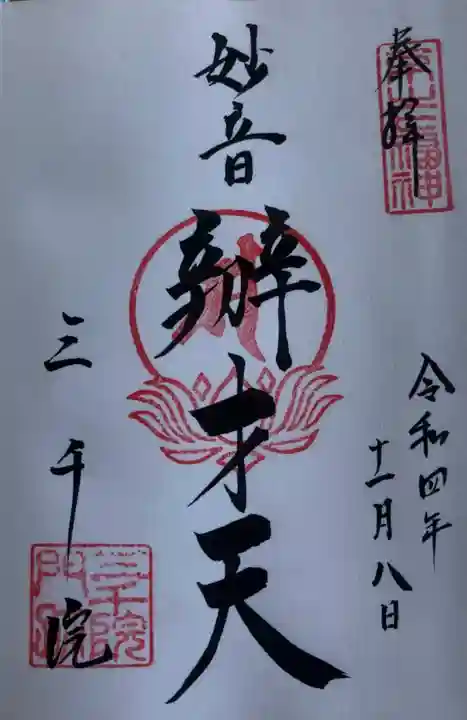 奉拝
令和四年
十一月八日
妙音
辨才天
三千院
三千院
門跡